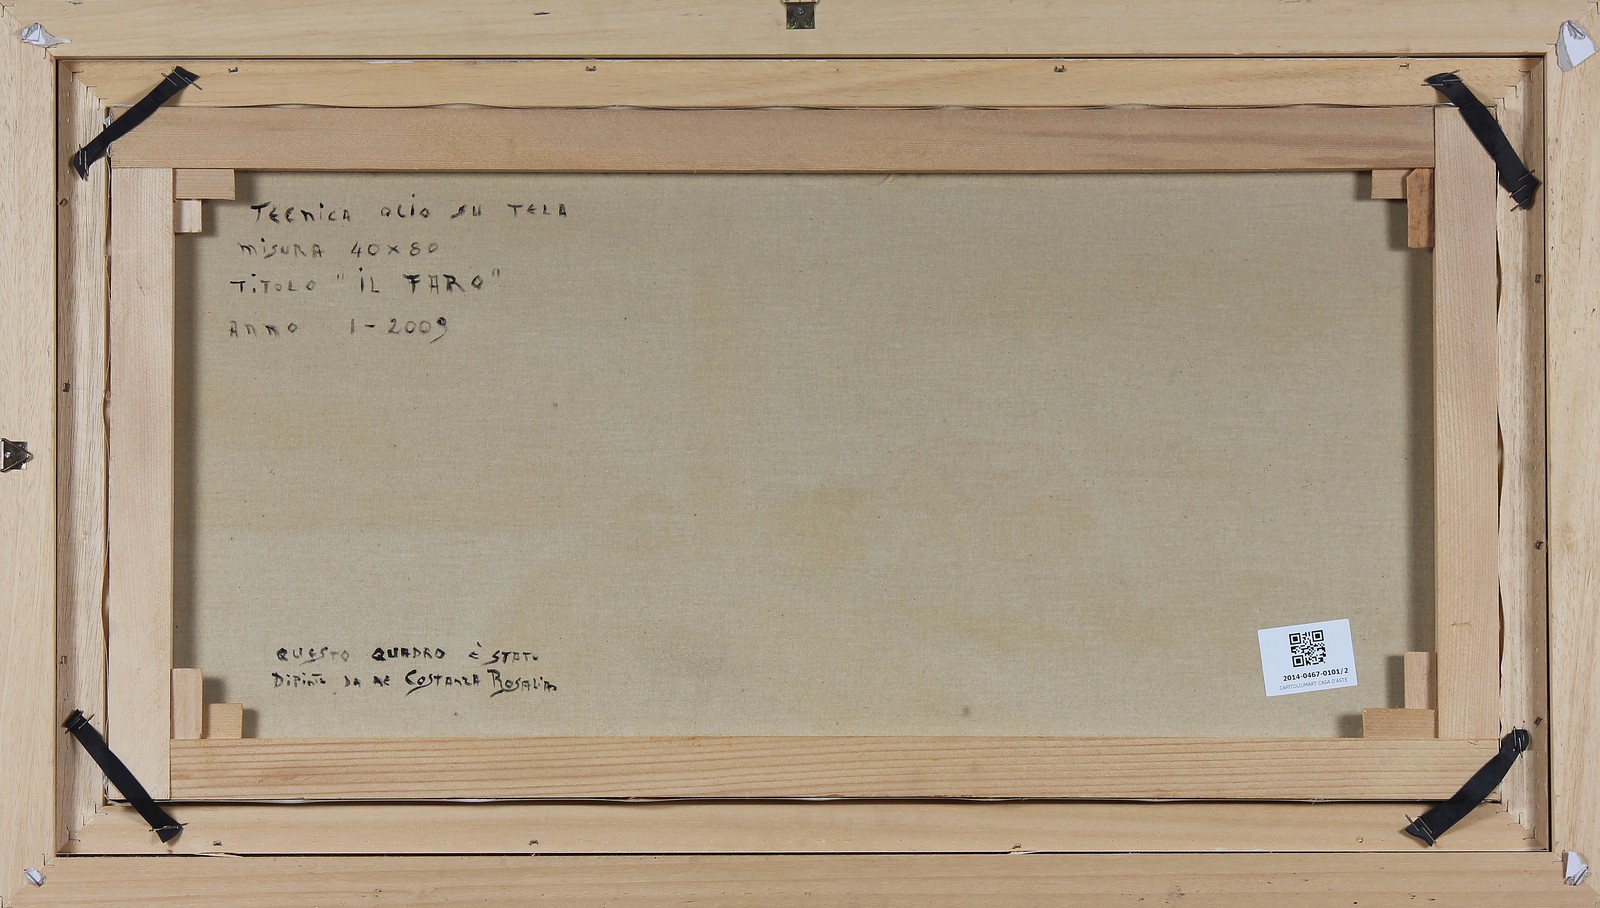 TECNICA OLIO SU TELA
MISURA 40x80
TITOLO "IL FARO"
ANNO 1-2009
QUESTO QUADRO È STATO
DIPINTO DA ME COSTANZA ROSALIA
2014-0467-0101/2
CAPITOLIUMART CASA D'ASTE